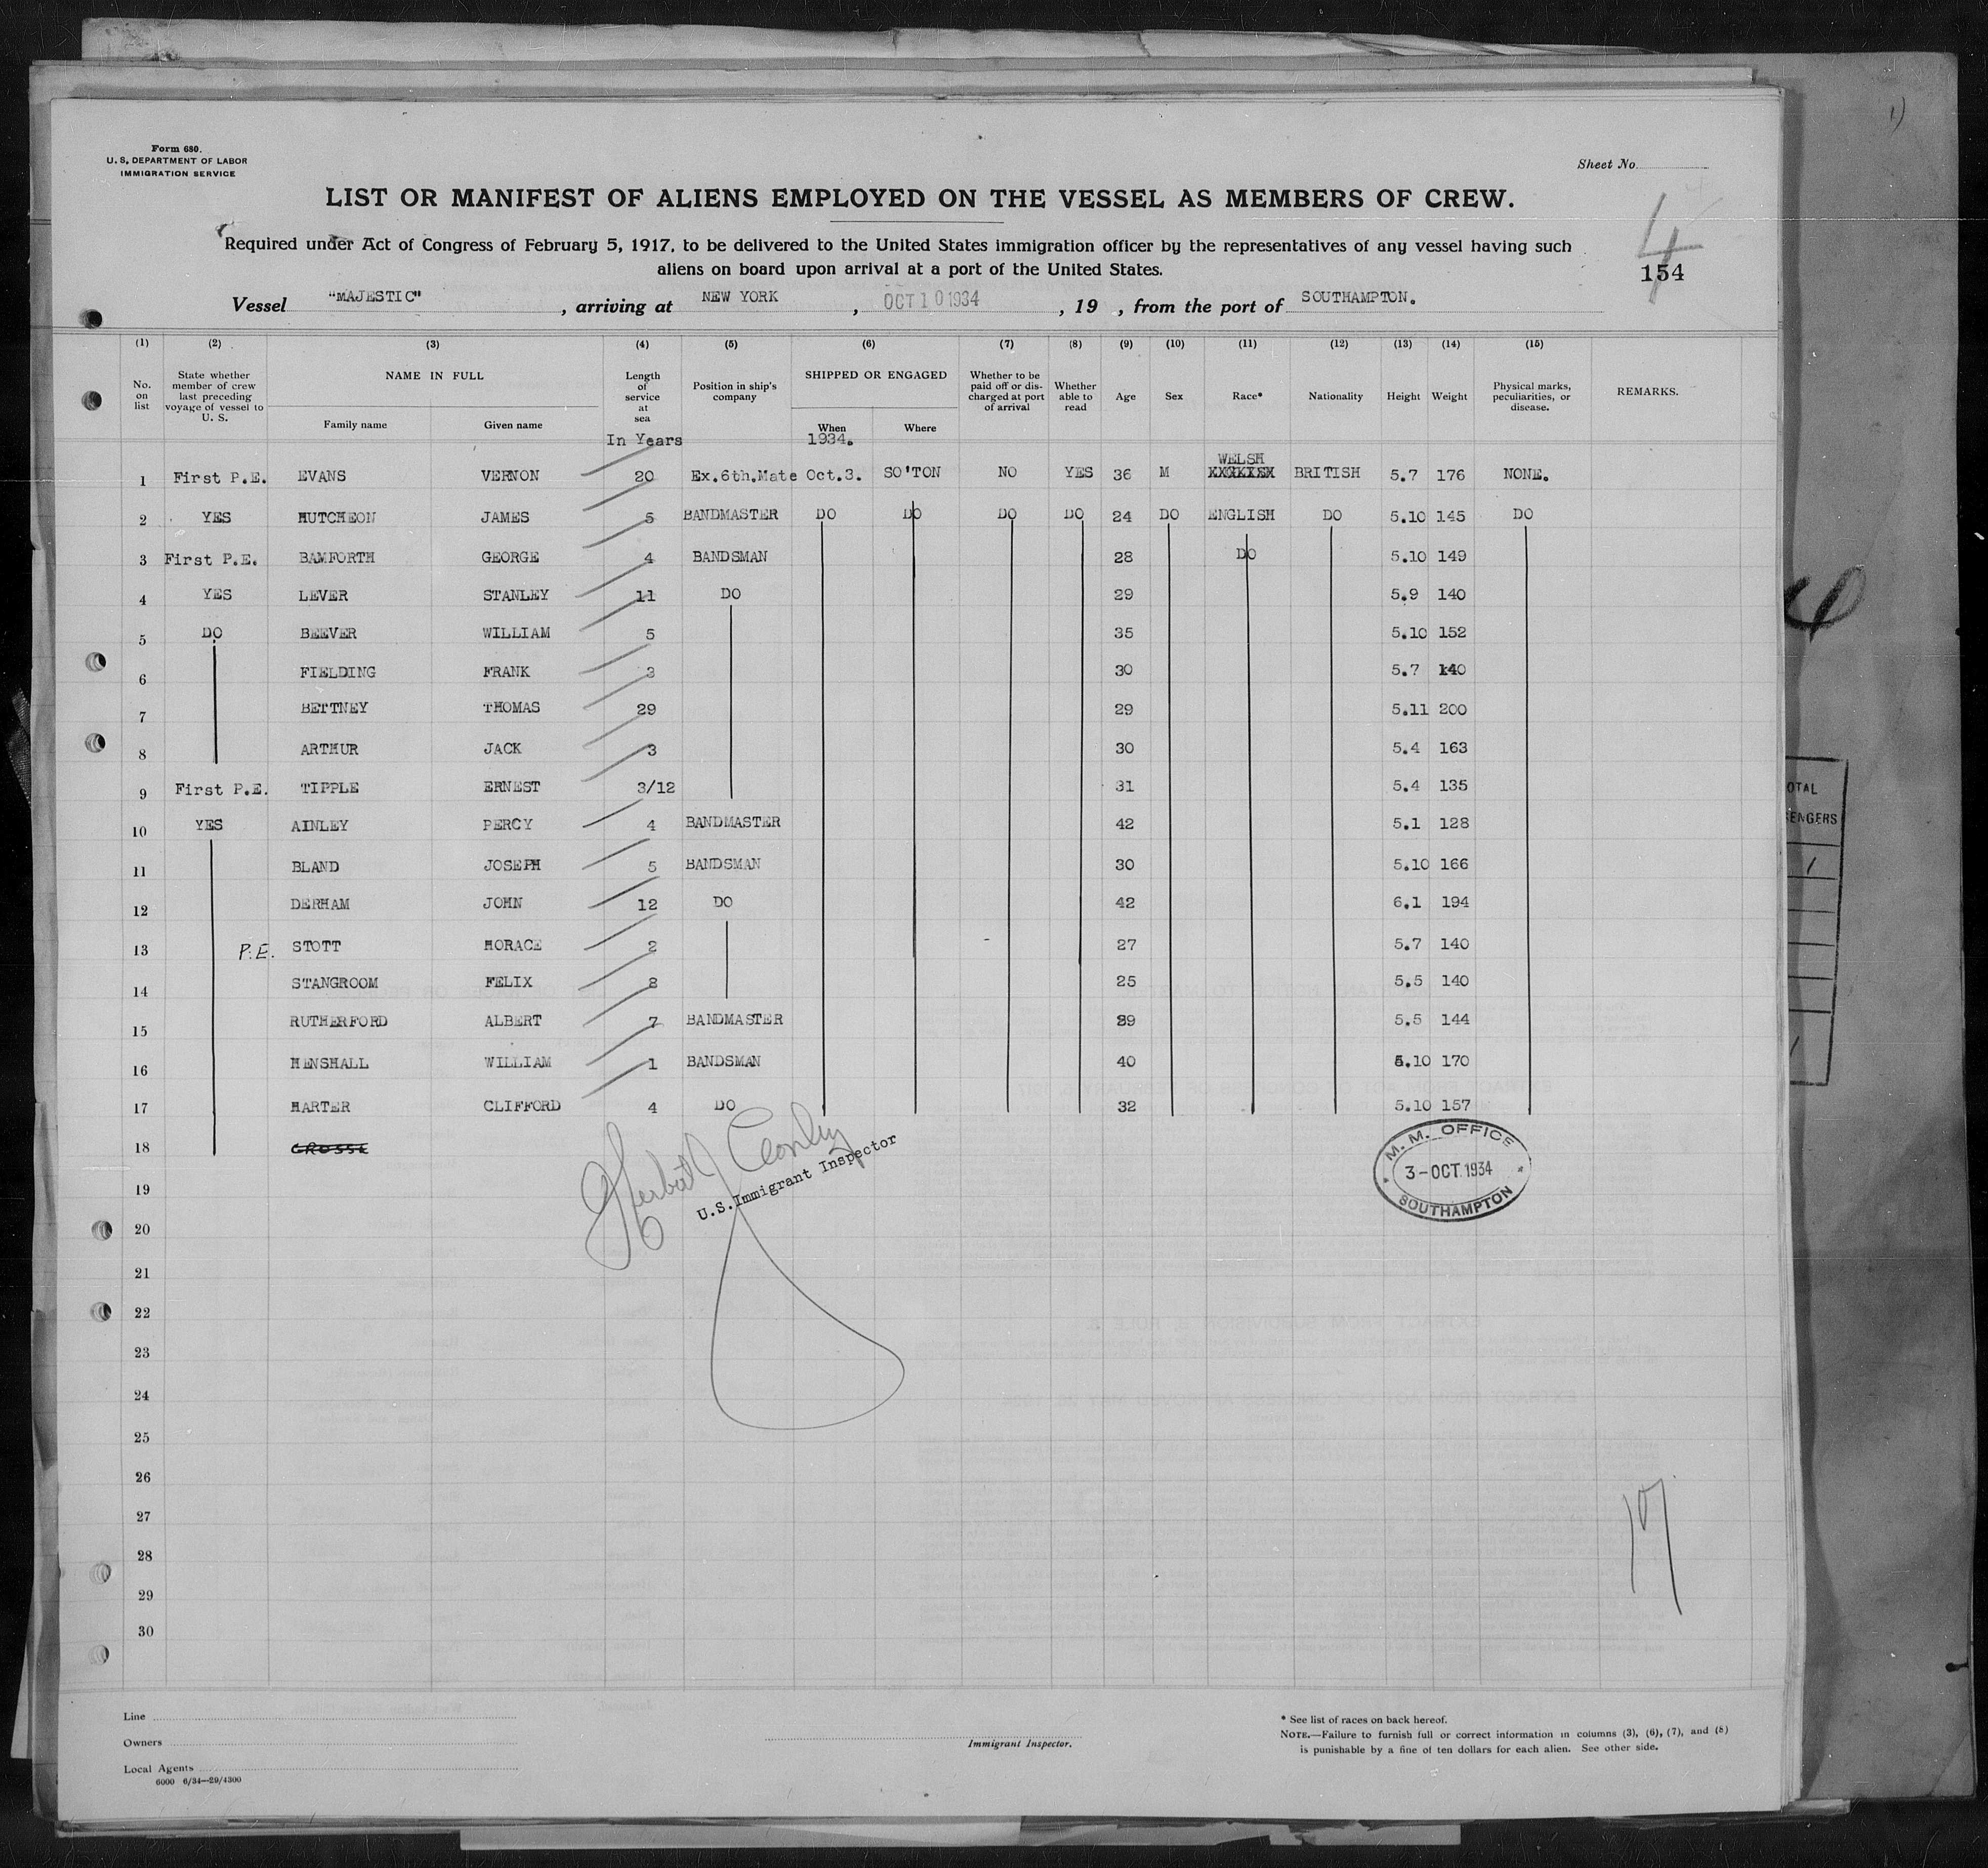 Form 680.
U. S. DEPARTMENT OF LABOR
IMMIGRATION SERVICE
Sheet No.
LIST OR MANIFEST OF ALIENS EMPLOYED ON THE VESSEL AS MEMBERS OF CREW.
Required under Act of Congress of February 5, 1917, to be delivered to the United States immigration officer by the representatives of any vessel having such
aliens on board upon arrival at a port of the United States.
4
154
Vessel "MAJESTIC", arriving at NEW YORK, OCT 10 1934, 19 , from the port of SOUTHAMPTON.
(1) (2) (3) (4) (5) (6) (7) (8) (9) (10) (11) (12) (13) (14) (15)
No. on list State whether member of crew last preceding voyage of vessel to U. S. NAME IN FULL Family name Given name Length of service at sea Position in ship's company SHIPPED OR ENGAGED When Where Whether to be paid off or discharged at port of arrival Whether able to read Age Sex Race* Nationality Height Weight Physical marks, peculiarities, or disease. REMARKS.
In Years 1934.
WELSH
1 First P.E. EVANS VERNON 20 Ex.6th.Mate Oct.3. SO'TON NO YES 36 M BRITISH 5.7 176 NONE.
2 YES HUTCHEON JAMES 5 BANDMASTER DO DO DO DO 24 DO ENGLISH DO 5.10 145 DO
3 First P.E. BAMFORTH GEORGE 4 BANDSMAN 28 DO 5.10 149
4 YES LEVER STANLEY 11 DO 29 5.9 140
5 DO BEEVER WILLIAM 5 35 5.10 152
6 FIELDING FRANK 3 30 5.7 140
7 BETTNEY THOMAS 29 29 5.11 200
8 ARTHUR JACK 3 30 5.4 163
9 First P.E. TIPPLE ERNEST 3/12 31 5.4 135
10 YES AINLEY PERCY 4 BANDMASTER 42 5.1 128
11 BLAND JOSEPH 5 BANDSMAN 30 5.10 166
12 DERHAM JOHN 12 DO 42 6.1 194
13 P.E. STOTT HORACE 2 27 5.7 140
14 STANGROOM FELIX 8 25 5.5 140
15 RUTHERFORD ALBERT 7 BANDMASTER 39 5.5 144
16 HENSHALL WILLIAM 1 BANDSMAN 40 5.10 170
17 HARTER CLIFFORD 4 DO 32 5.10 157
18 CROSSE
19
20
21
22
23
24
25
26
27
28
29
30
U.S. Immigrant Inspector
M. M. OFFICE
3-OCT 1934
SOUTHAMPTON
17
OTAL
ENGERS
Line
Owners
Local Agents
6000 6/34—29/4300
Immigrant Inspector.
* See list of races on back hereof.
NOTE.—Failure to furnish full or correct information in columns (3), (6), (7), and (8)
is punishable by a fine of ten dollars for each alien. See other side.